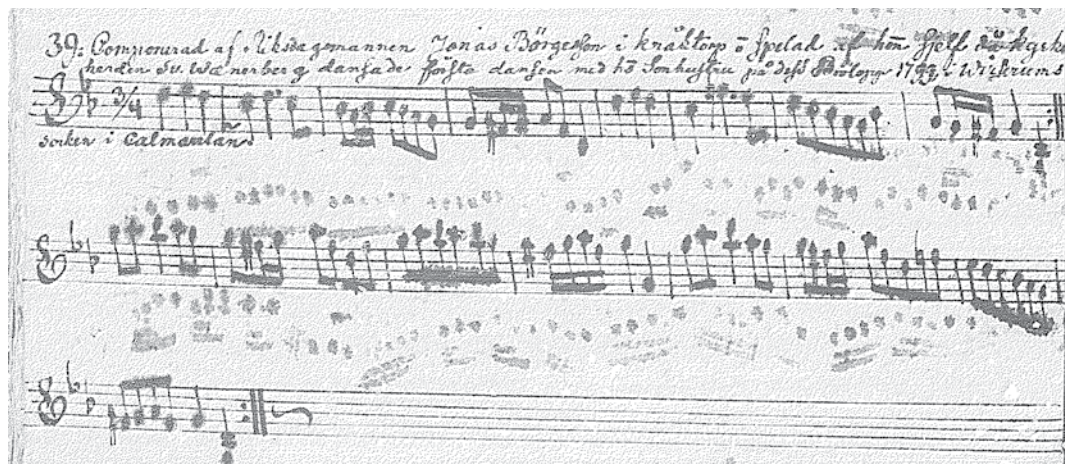 39: Componerad af Riksdagsmannen Jonas Börgesson i Knåstorp o Spelad af hōn Sjelf då Kyrko
herden Sv. Wænerberg dansade första dansen med hs Sonhustru på dess Bröllopp 1799 i Wiserums
3/4
socken i Calmarlän